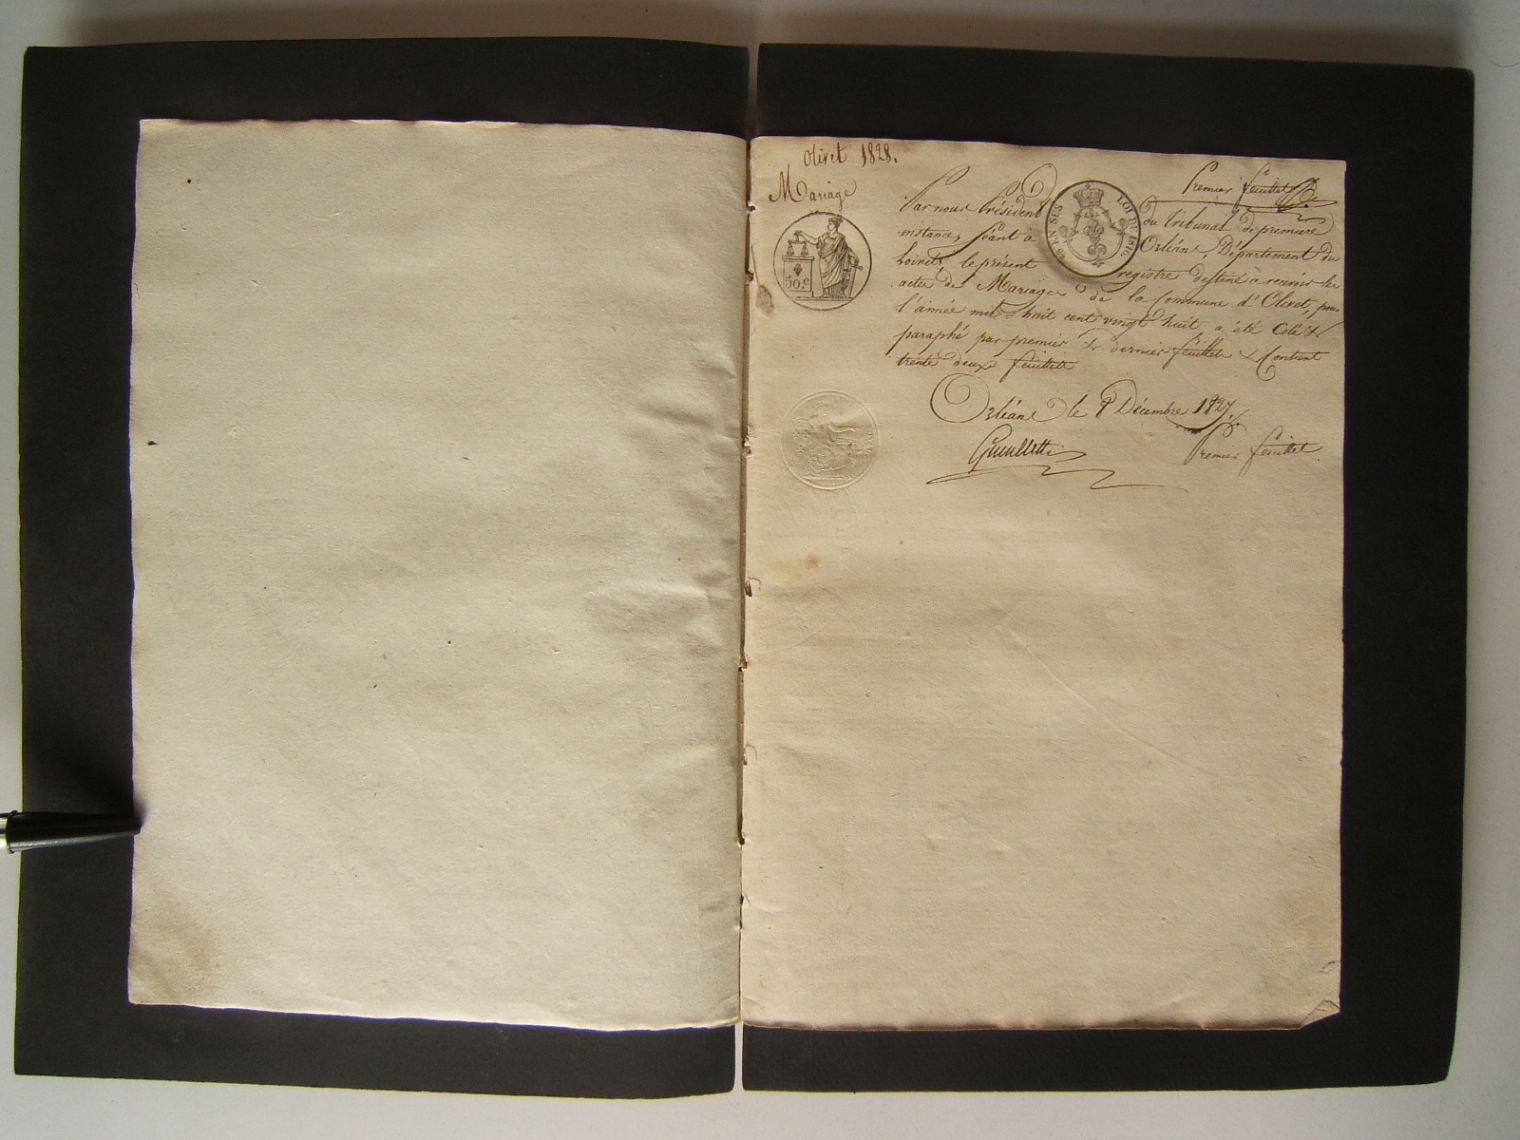 Olivet 1828.
Mariage
Premier feuillet
50.c
LOI DE 1816
Par nous Président du Tribunal de premiere
instance, séant à Orléans, Département du
Loiret, le présent registre destiné à recevoir les
actes de Mariage de la Commune d'Olivet, pour
l'année mil huit cent vingt huit, a été Coté &
paraphé par premier & dernier feuillet & Contient
trente deux feuillets
Orléans le 8 Décembre 1827.
Premier feuillet.